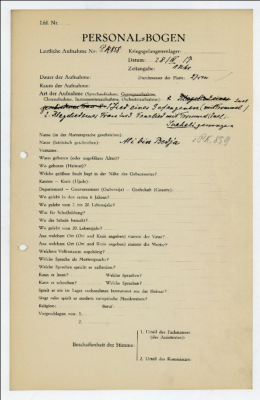 Lfd. Nr.
PERSONAL-BOGEN
Lautliche Aufnahme Nr: PK 858 Kriegsgefangenenlager:
Datum: 28/III. 17
Zeitangabe:
Dauer der Aufnahme: Durchmesser der Platte: 27 cm
Raum der Aufnahme:
Art der Aufnahme (Sprechaufnahme, Gesangsaufnahme,
Choraufnahme, Instrumentenaufnahme, Orchesteraufnahme):
Name (in der Muttersprache geschrieben):
Name (lateinisch geschrieben): Ali bin Bedja PK. 859
Vorname:
Wann geboren (oder ungefähres Alter)?
Wo geboren (Heimat)?
Welche größere Stadt liegt in der Nähe des Geburtsortes?
Kanton — Kreis (Ujedz):
Departement — Gouvernement (Gubernija) — Grafschaft (County):
Wo gelebt in den ersten 6 Jahren?
Wo gelebt vom 7. bis 20. Lebensjahr?
Was für Schulbildung?
Wo die Schule besucht?
Wo gelebt vom 20. Lebensjahr?
Aus welchem Ort (Ort und Kreis angeben) stammt der Vater?
Aus welchem Ort (Ort und Kreis angeben) stammt die Mutter?
Welchem Volksstamm angehörig?
Welche Sprache als Muttersprache?
Welche Sprachen spricht er außerdem?
Kann er lesen? Welche Sprachen?
Kann er schreiben? Welche Sprachen?
Spielt er ein im Lager vorhandenes Instrument aus der Heimat?
Singt oder spielt er modern europäische Musikweisen?
Religion: Beruf:
Vorgeschlagen von: 1.
2.
Beschaffenheit der Stimme:
1. Urteil des Fachmannes
(des Assistenten):
2. Urteil des Kommissars: